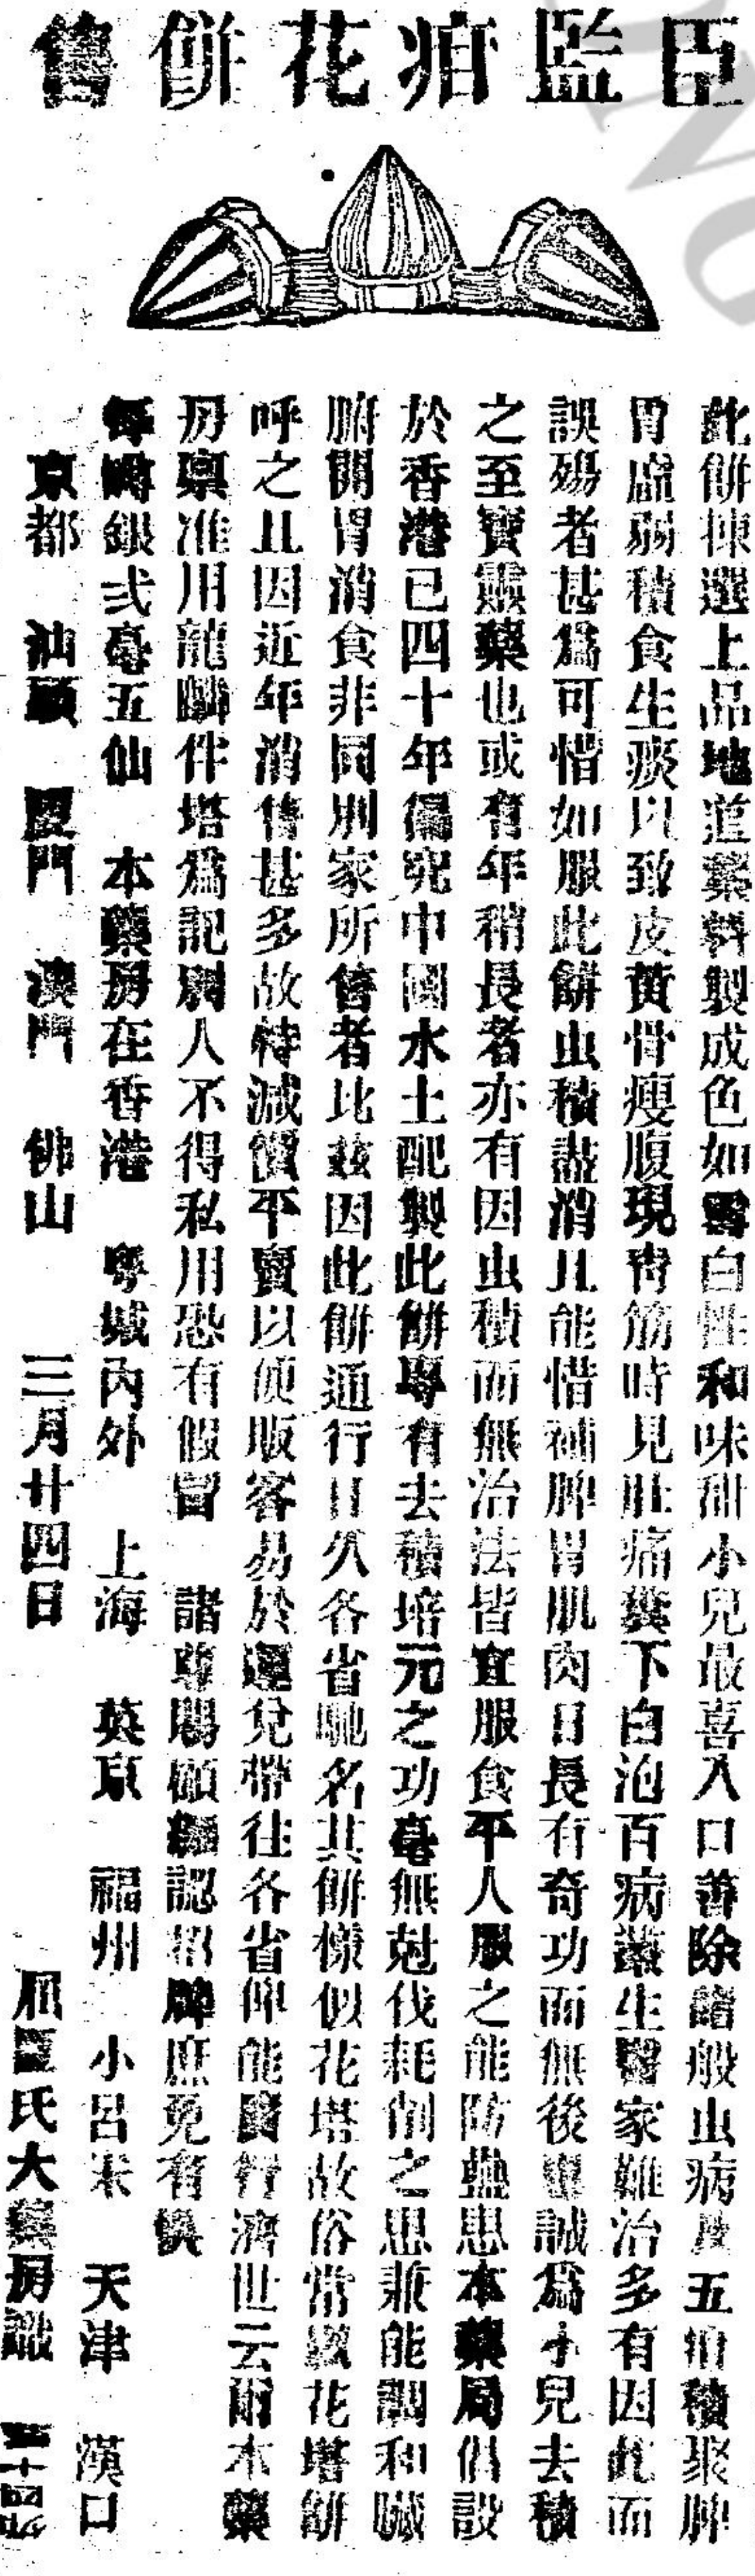 臣監疳花餅售
此餅揀選上品地道藥料製成色如雪白性和味甜小兒最喜入口善除諸般虫病及五疳積聚脾
胃虛弱積食生痰以致皮黃骨瘦腹現青筋時見肚痛糞下白泡百病叢生醫家難治多有因此而
誤殤者甚爲可惜如服此餅虫積盡消且能惜補脾胃肌肉日長有奇功而無後患誠爲小兒去積
之至寶靈藥也或有年稍長者亦有因虫積而無治法皆宜服食平人服之能防蟲患本藥局倡設
於香港已四十年偏究中國水土配製此餅專有去積培元之功毫無尅伐耗削之患兼能調和臟
腑開胃消食非同別家所售者比茲因此餅通行日久各省馳名其餅樣似花塔故俗常號花塔餅
呼之且因近年消售甚多故特減價平賣以便販客易於運兌帶往各省俾能廣行濟世云爾本藥
房禀准用龍麟伴塔爲記別人不得私用恐有假冒 諸尊賜顧細認招牌庶免有悞
每罇銀弍毫五仙 本藥房在香港 粤城內外 上海 英京 福州 小呂宋 天津 漢口
京都 汕頭 厦門 澳門 佛山 三月廿四日 屈臣氏大藥房識